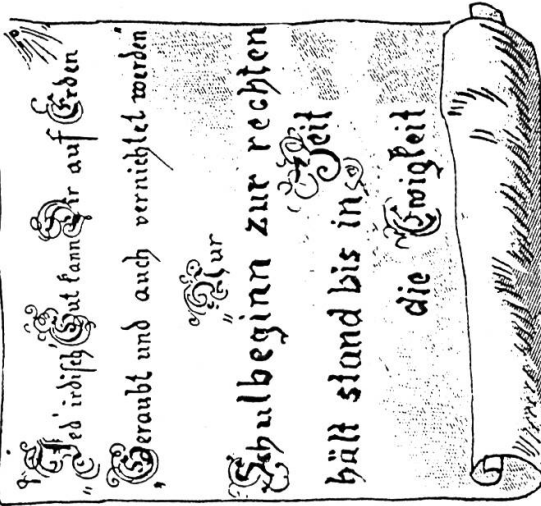 "Jed' irdisch' Gut kann Dir auf Erden
Geraubt und auch vernichtet werden
"Nur
Schulbeginn zur rechten
Zeit
hält stand bis in
die Ewigkeit